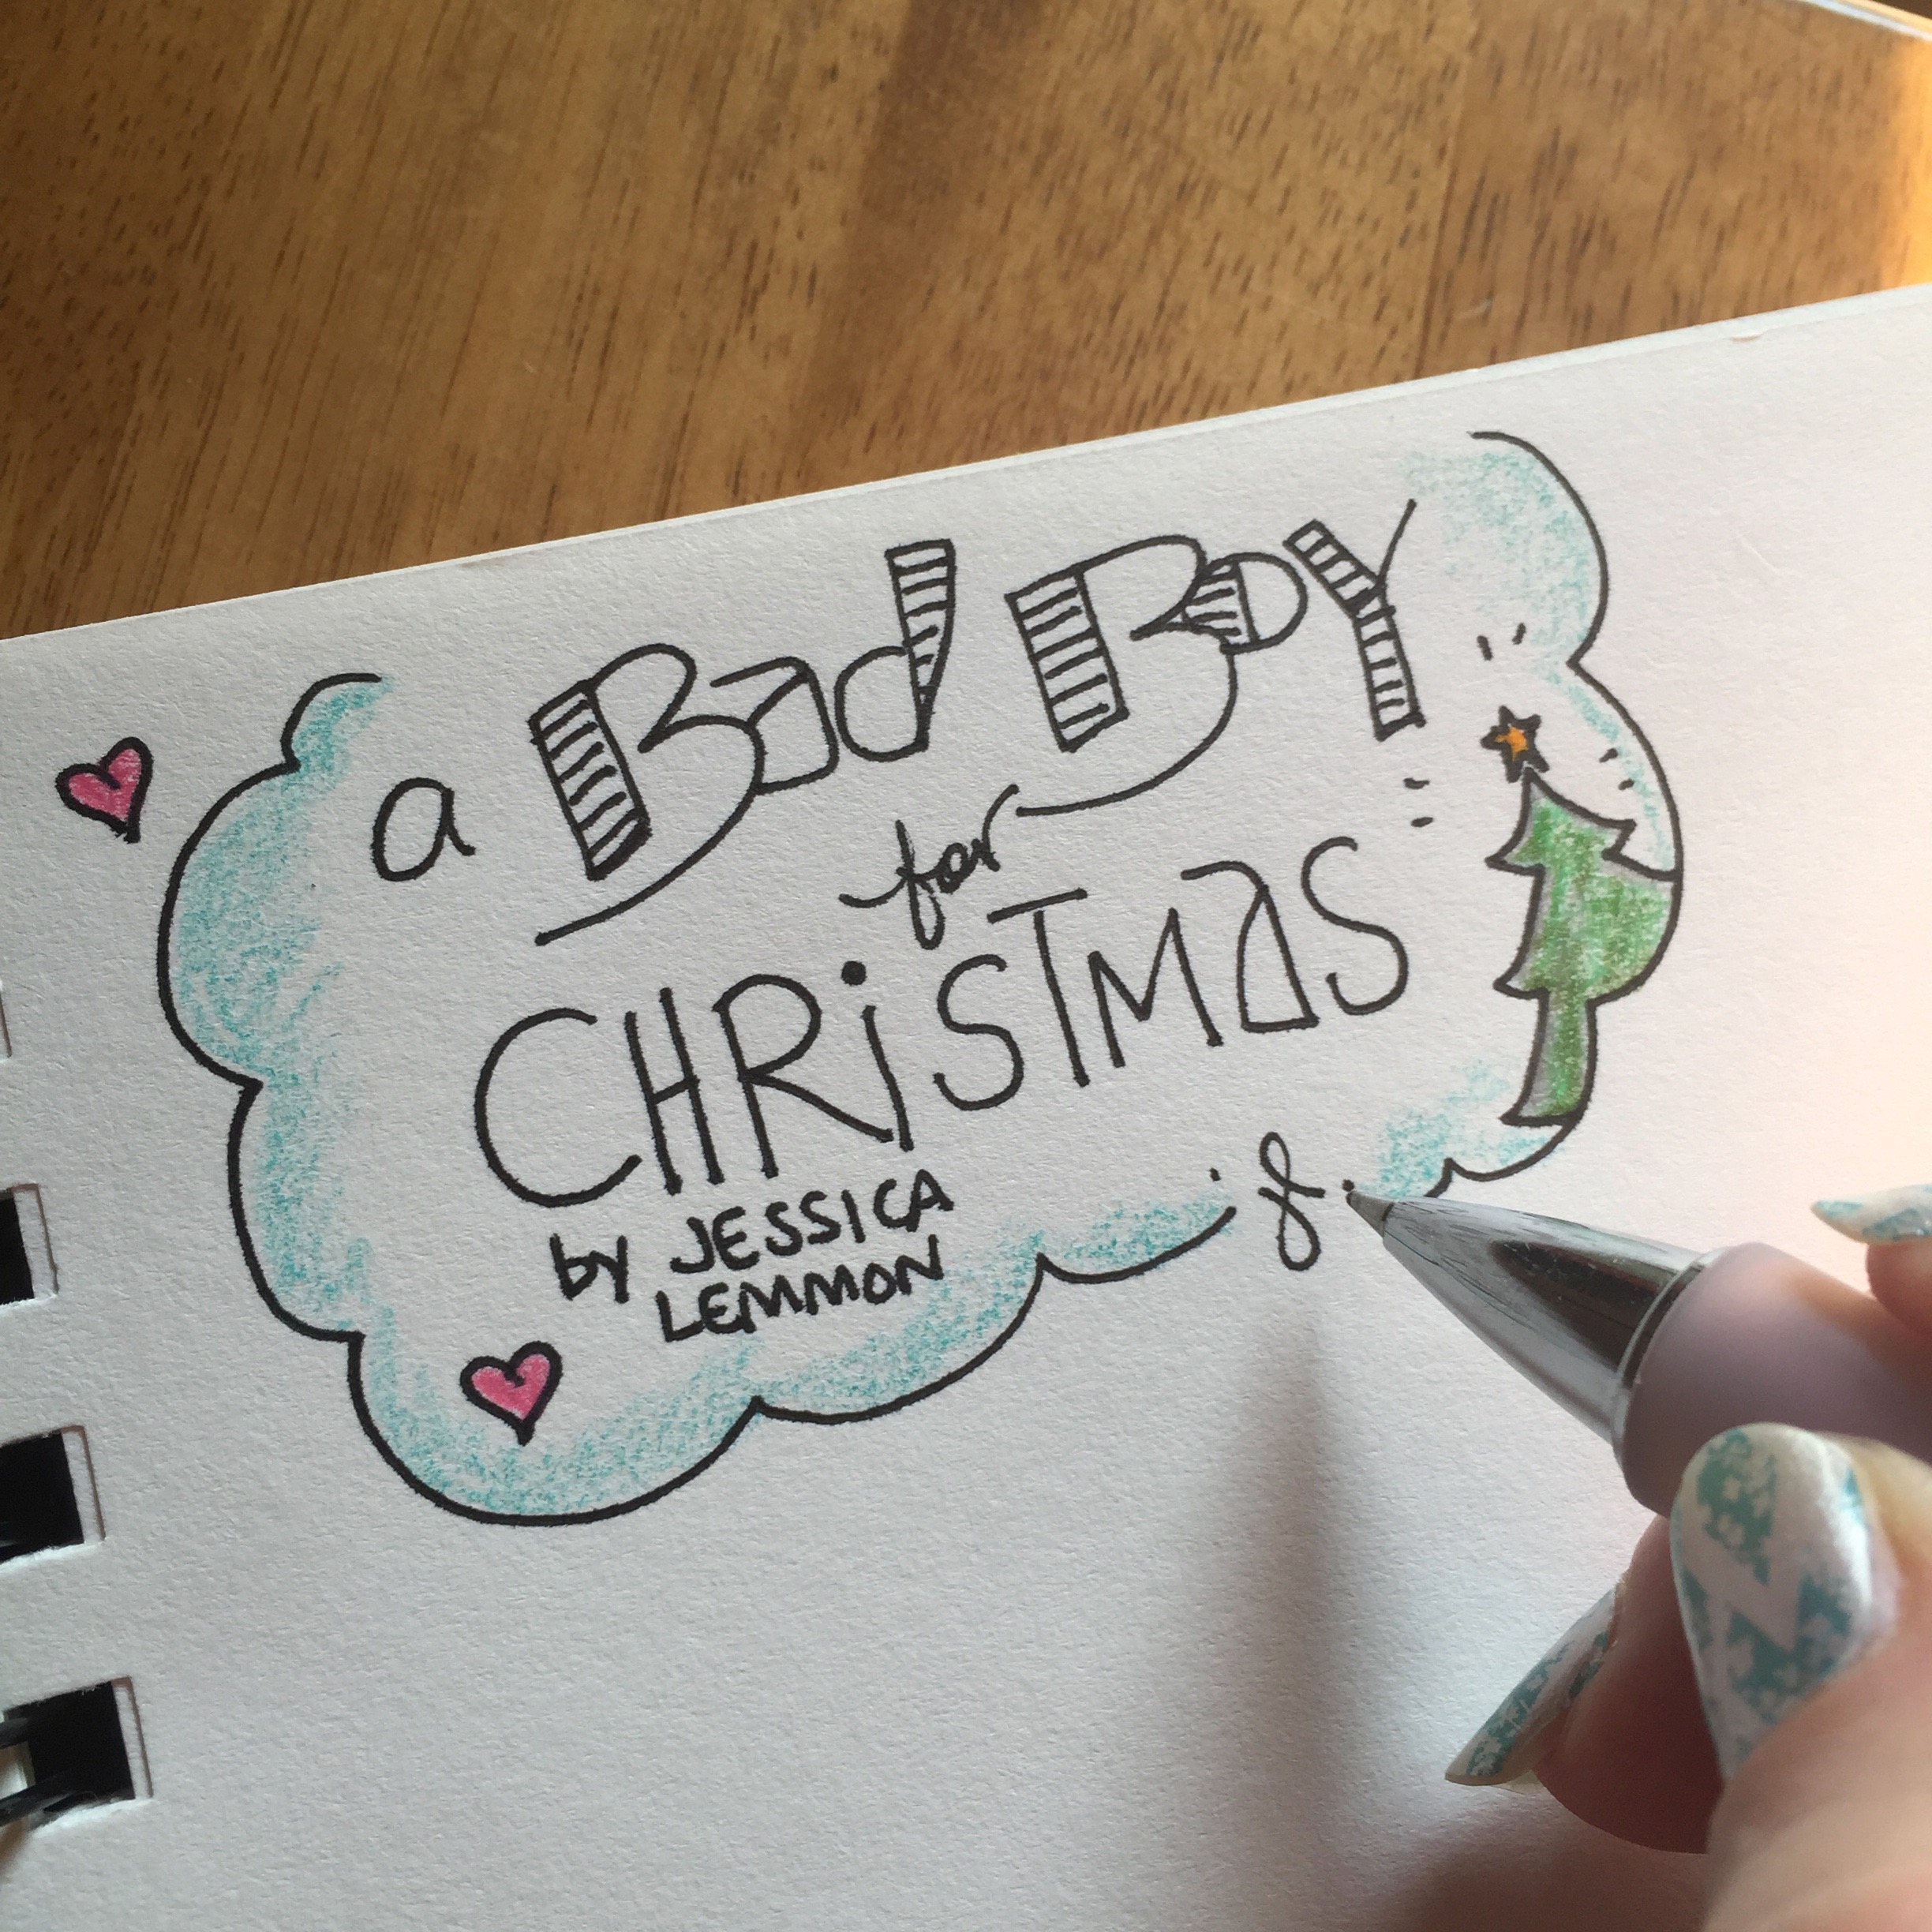 a Bad Boy
for
CHRiSTMaS
by JESSICA
LEMMON